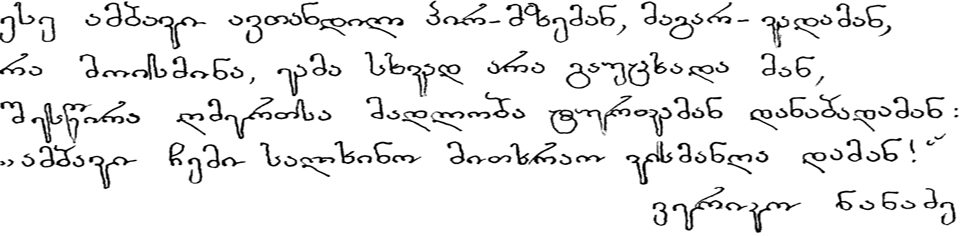 ესე ამბავი ავთანდილ პირ-მზემან, მაგარ-ვადამან,
რა მოისმინა, იამა სხვად არა გაუცხადა მან,
შესწირა ღმერთსა მადლობა ტურფამან დანაბადამან:
„ამბავი ჩემი სალხინო მითხრაო ვისმანღა დამან!“
ვერიკო ნანაძე